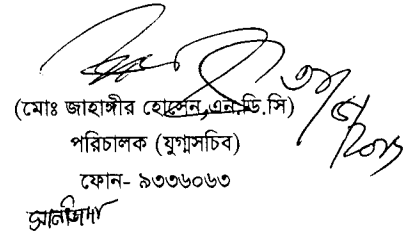 (মোঃ জাহাঙ্গীর হোসেন,এন.ডি.সি)
পরিচালক (যুগ্মসচিব)
ফোন- ৯৩৩৬০৬৩